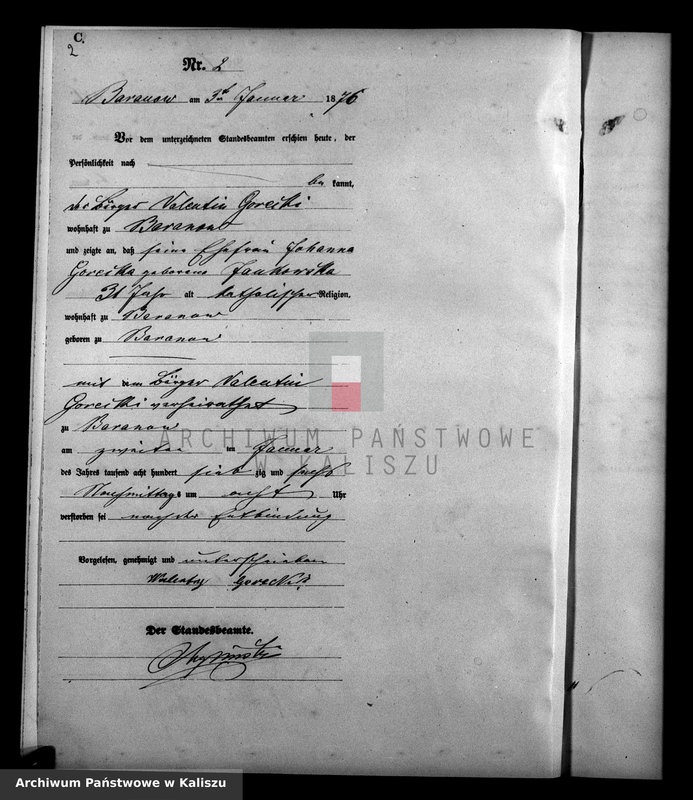 C.
2
Nr. 2
Baranow am 3ten Januar 1876
Vor dem unterzeichneten Standesbeamten erschien heute, der
Persönlichkeit nach
be kannt,
der Bürger Valentin Gorecki
wohnhaft zu Baranow
und zeigte an, daß seine Ehefrau Johanna
Gorecka geborene Jankowska
31 Jahr alt katholischer Religion,
wohnhaft zu Baranow
geboren zu Baranow
mit dem Bürger Valentin
Gorecki verheirathet
zu Baranow
am zweiten ten Januar
des Jahres tausend acht hundert sieb zig und sechs
Nachmittags um acht Uhr
verstorben sei nach der Entbindung
Vorgelesen, genehmigt und unterschrieben
Walenty Gorecki
Der Standesbeamte.
ARCHIWUM PAŃSTWOWE
W KALISZU
Archiwum Państwowe w Kaliszu